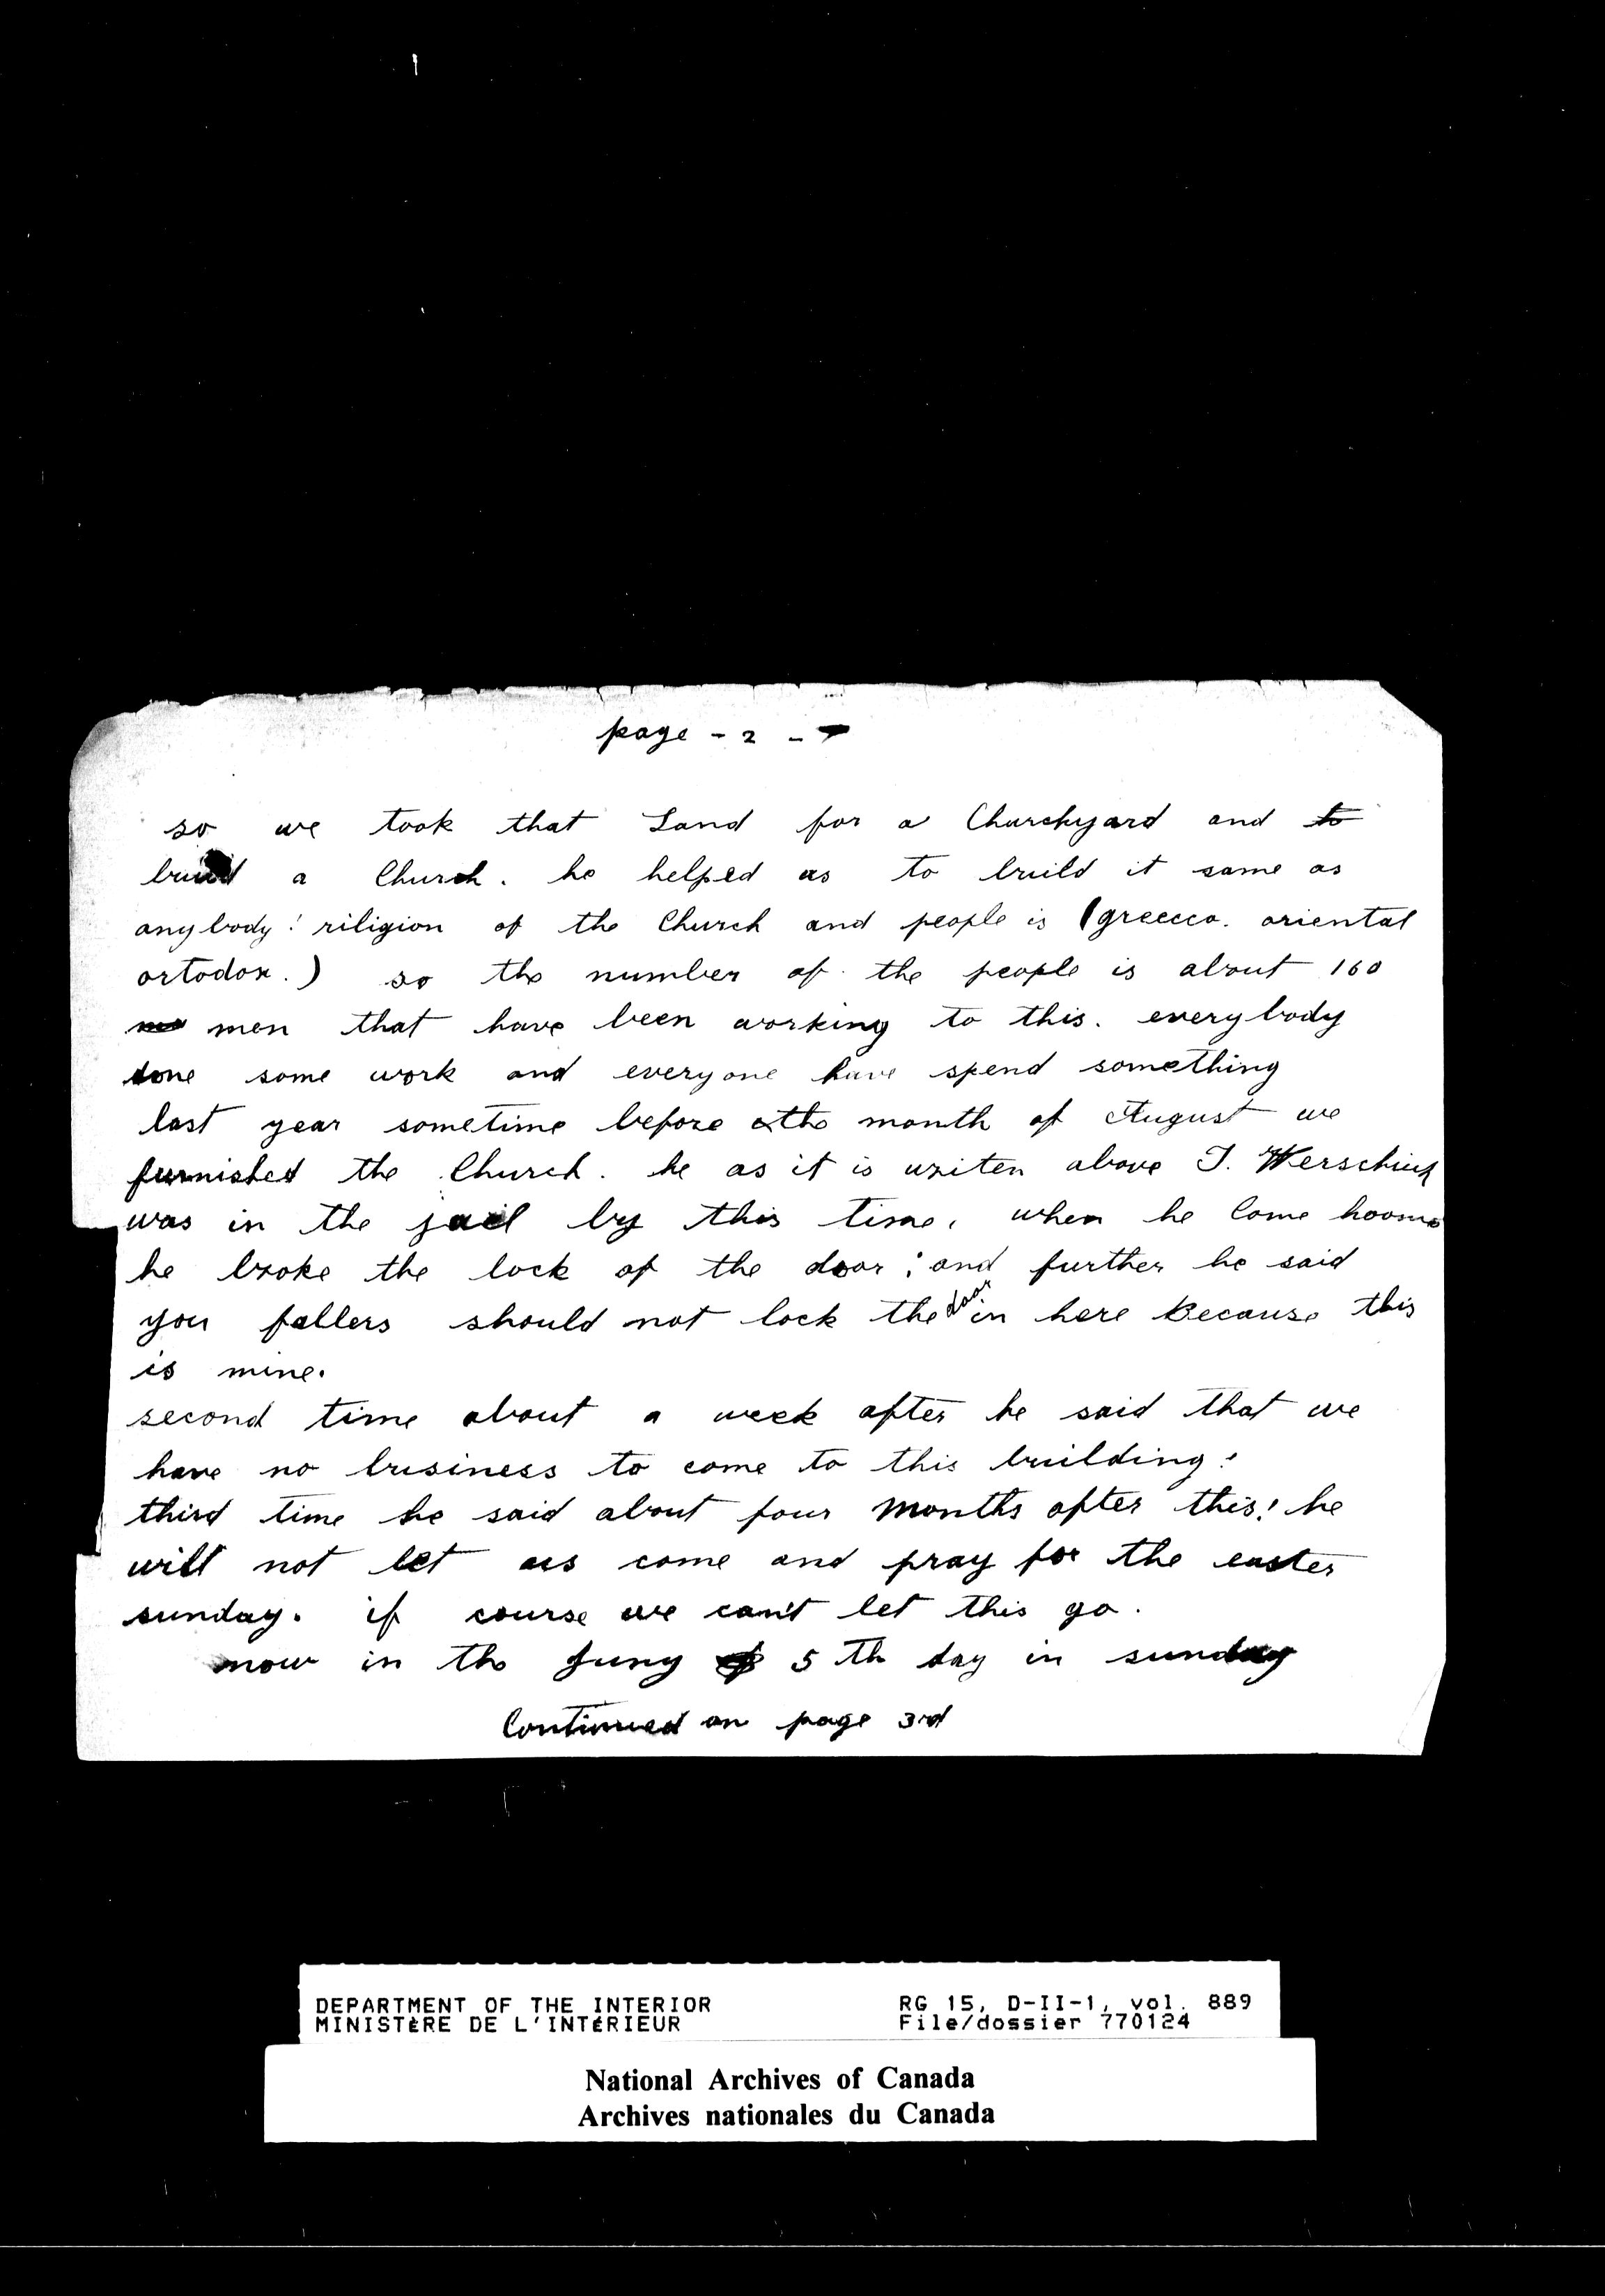 page - 2 -
so we took that Land for a Churchyard and to
build a Church. he helped us to build it same as
anybody! riligion of the Church and people is (greecco. oriental
ortodox.) so the number of the people is about 160
men that have been working to this. everybody
done some work and everyone have spend something
last year sometime before the month of August we
furnished the Church. he as it is writen above J. Werschiuk
was in the jail by this time, when he Come hoome
he broke the lock of the door; and further he said
you fellers should not lock the door in here Because this
is mine.
second time about a week after he said that we
have no business to come to this building!
third time he said about four months after this! he
will not let us come and pray for the easter
sunday. if course we can't let this go.
now in the Juny 5 th day in sunday
Continued on page 3rd
DEPARTMENT OF THE INTERIOR RG 15, D-II-1, vol. 889
MINISTÈRE DE L'INTÉRIEUR File/dossier 770124
National Archives of Canada
Archives nationales du Canada